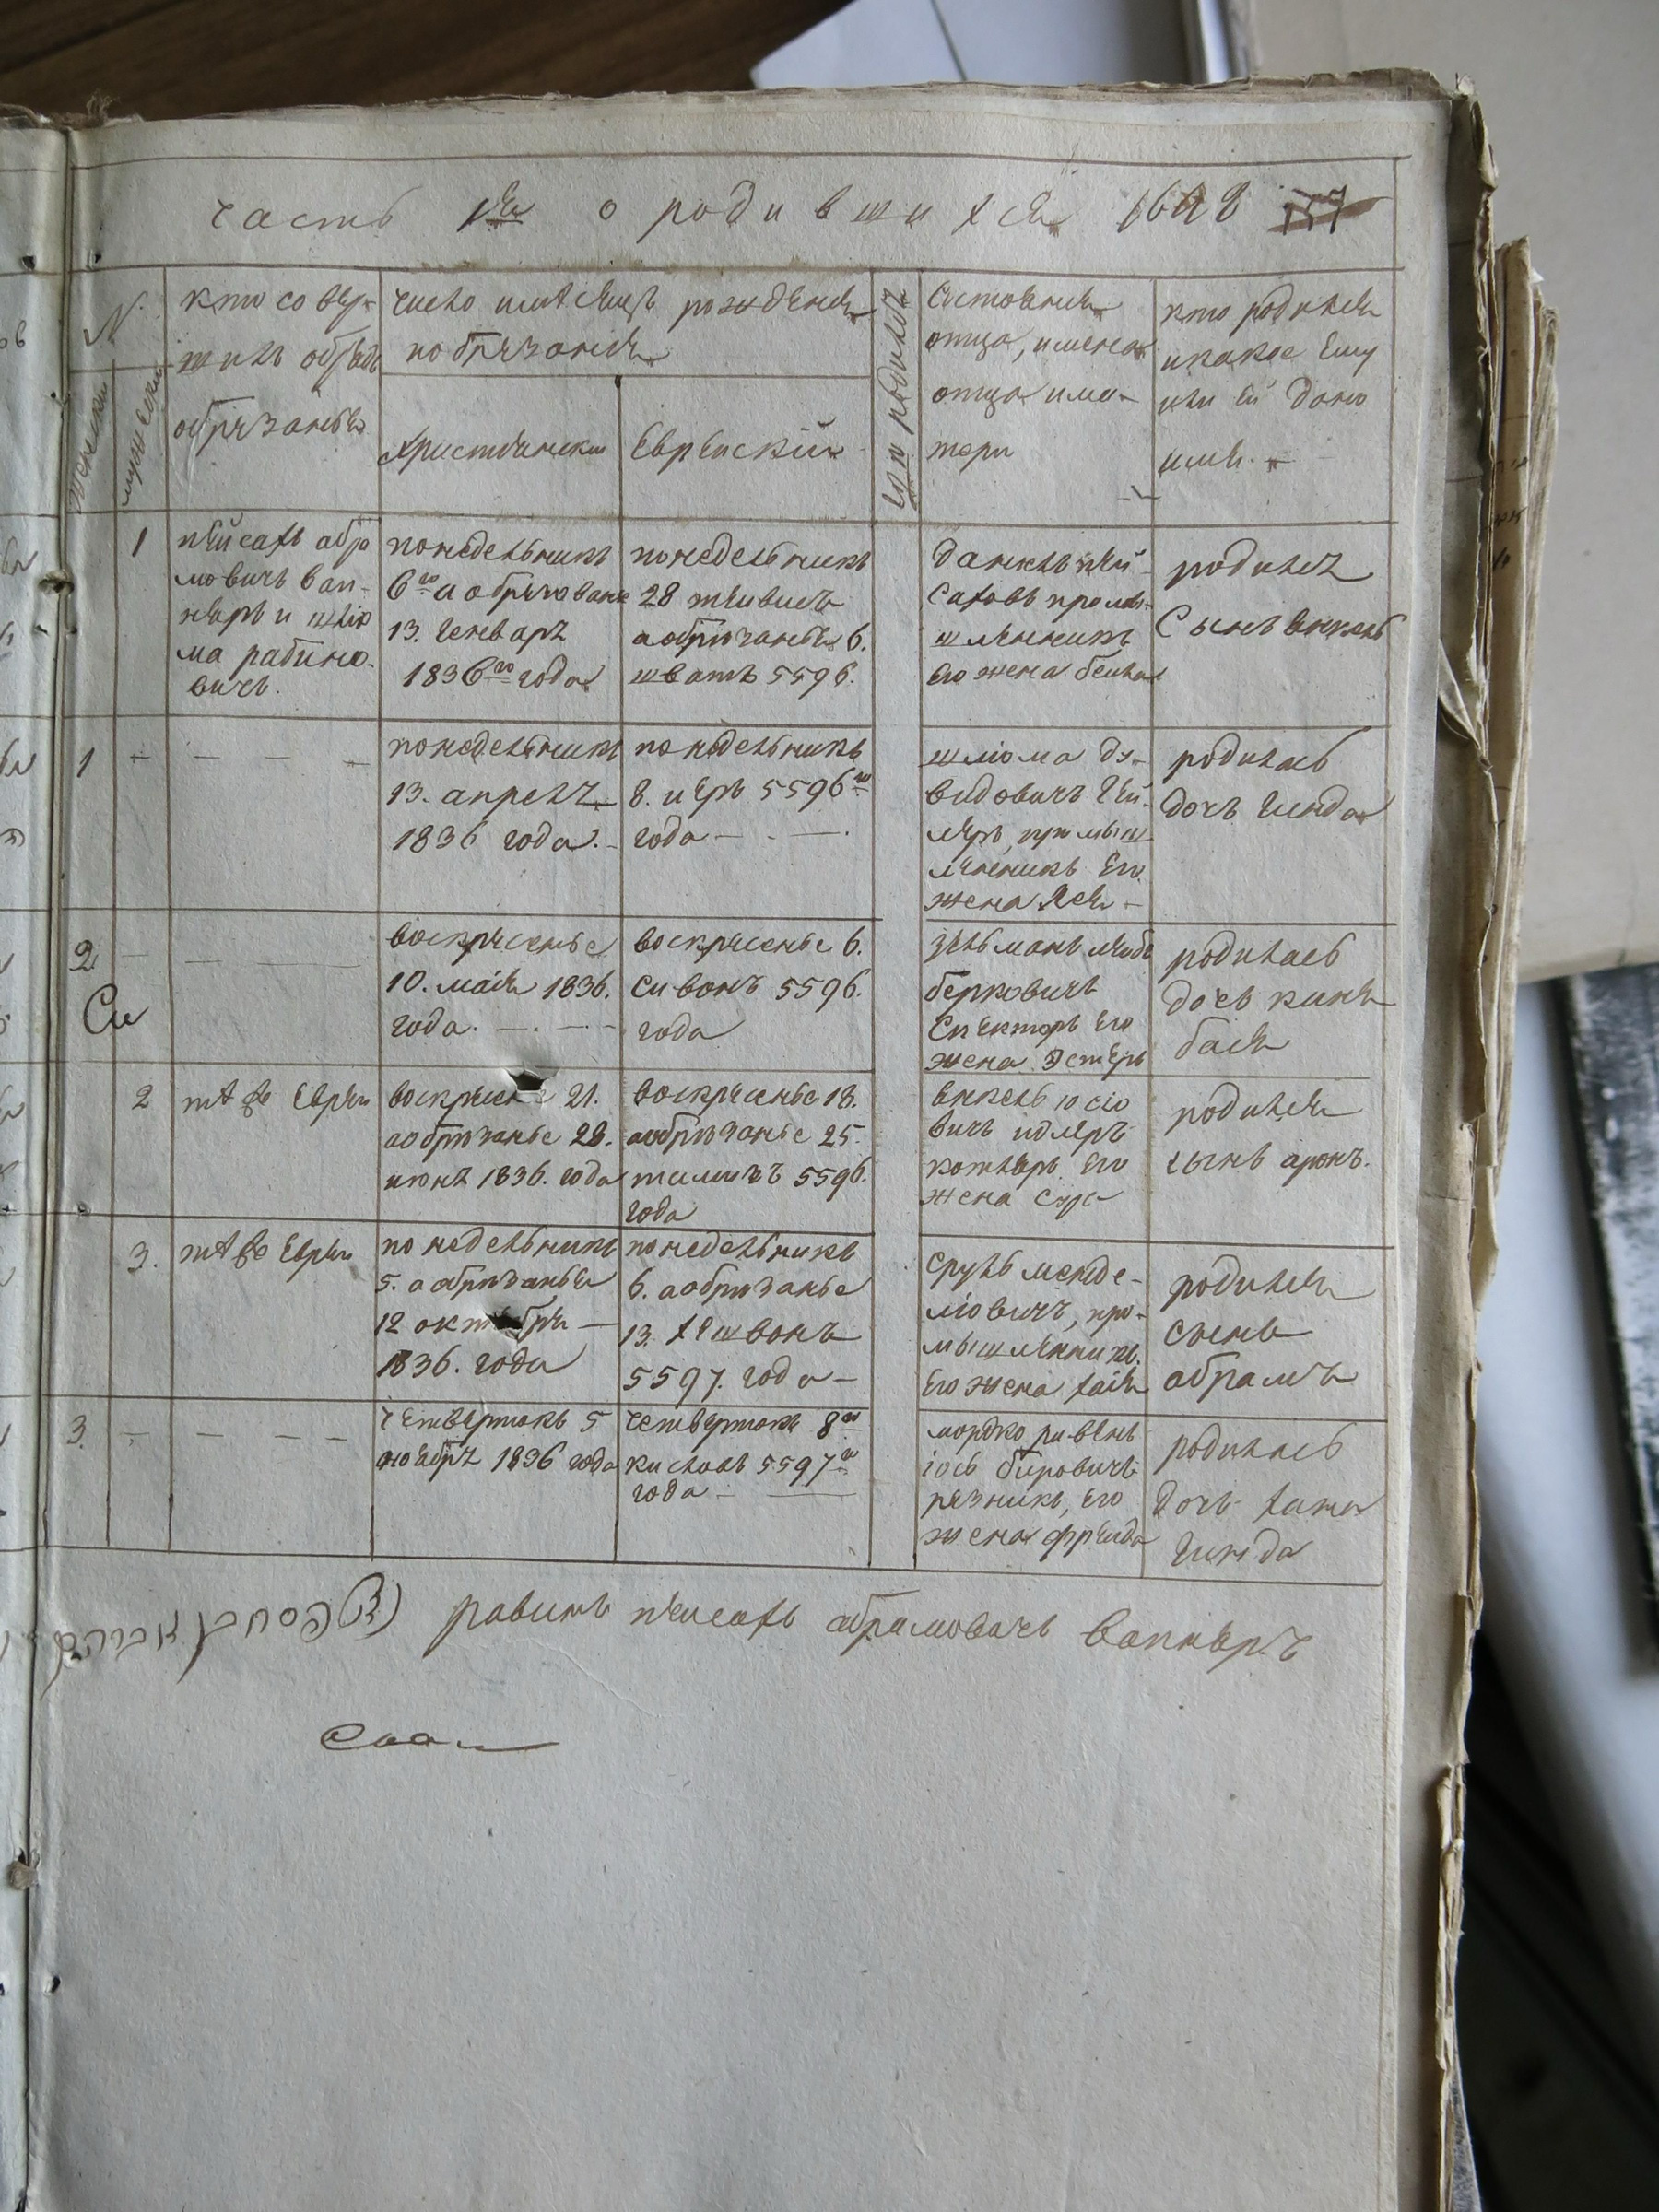 часть 1я о родившихся 1648
№
женски
мужески
кто совер-
шилъ обрядъ
обрѣзанья
число имѣсяцъ рожденія
иобрѣзанія
Христіянски
Еврейскій
гдѣ родился
Состоянія
отца, имена
отца има-
тери
кто родился
икакое Ему
или Ей дано
имя.
1
пейсахъ абра
мовичъ вап-
няръ и шліо
ма рабино-
вичъ.
понедельникъ
6го а обрѣзованье
13. Генваря
1836го года
понедельникъ
28 тейвисъ
аобрѣзанья 6.
шватъ 5596.
данилъ пей-
саховъ промы-
шленникъ
его жена бейла
родился
Сынъ Янкель
1 — — — —
понедельникъ
13. апреля
1836 года. —
понедельникъ
8. иеръ 5596го
года — . — .
шліома дз-
видовичъ гей-
леръ, промыш
ленникъ Его
жена Лея —
родилась
дочь Гинда
2 — — —
воскресенье
10. маія 1836.
года. — . — . —
воскресенье 6.
сивонъ 5596.
года
зельманъ лейбъ
берковичъ
Спекторъ Его
жена Эстеръ
родилась
дочь
бася
2
тѣже Евреи
воскресенье 21.
аобрѣзанье 28.
июня 1836. года
воскресенье 18.
аобрѣзанье 25.
тамизъ 5596.
года
Янкель іосіо
вичъ
Его
жена сура
родился
сынъ аронъ.
3.
тѣже Евреи
понедельникъ
5. аобрѣзанья
12 октебря —
1836. года
понедельникъ
6. аобрѣзанье
13. хешвонъ
5597. года —
сруль менде-
ліовичъ, про-
мышленникъ.
Его жена хаія
родился
сынъ
абрамъ
3. — — — —
четвертокъ 5
ноября 1836 года
четвертокъ 8го
кислевъ 5597го
года —
мордко
іось бировичъ
рѣзникъ, его
жена фрейда
родилась
дочь хана
Гинда
равинъ пейсахъ абрамовичъ вапняръ